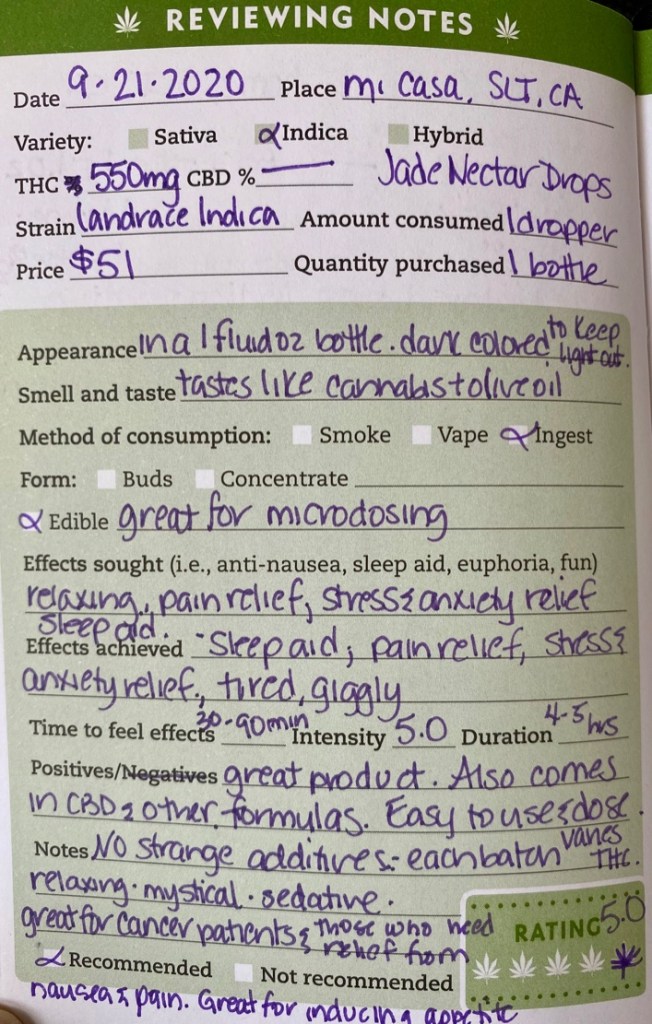 REVIEWING NOTES
Date 9.21.2020 Place mi casa, SLT, CA
Variety: Sativa Indica Hybrid
THC % 550mg CBD % — Jade Nectar Drops
Strain landrace Indica Amount consumed 1 dropper
Price $51 Quantity purchased 1 bottle
Appearance in a 1 fluid oz bottle. dark colored to keep light out.
Smell and taste tastes like cannabis + olive oil
Method of consumption: Smoke Vape Ingest
Form: Buds Concentrate
Edible great for microdosing
Effects sought (i.e., anti-nausea, sleep aid, euphoria, fun)
relaxing, pain relief, stress & anxiety relief
sleep aid.
Effects achieved - Sleep aid, pain relief, stress &
anxiety relief, tired, giggly
Time to feel effects 30-90min Intensity 5.0 Duration 4-5 hrs
Positives/Negatives great product. Also comes
in CBD & other formulas. Easy to use & dose.
Notes No strange additives - each batch varies THC.
relaxing · mystical · sedative.
great for cancer patients & those who need
relief from
RATING 5.0
Recommended Not recommended
nausea & pain. Great for inducing appetite